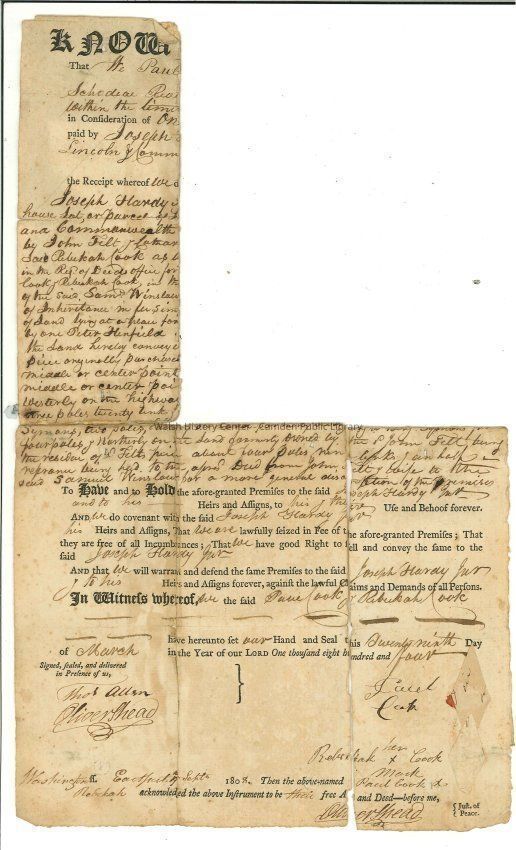 KNOW
That We Paul
Schodiac
within the limi
in Consideration of On
paid by Joseph
Lincoln & Comm
the Receipt whereof We
Joseph Hardy
house lot, or parcel
and Commonwealth
by John Felt &
said Rebekah Cook as
in the Reg. of Deeds office for
Cook & Rebekah Cook, in the
of the said Saml Winslow
of Inheritance in fee sim
of Land lying at a place for
by one Peter Henfield
the Land hereby convey
piece originally purchase
middle or center point
middle or center poi
Westerly on the highway
three poles twenty link
Symons, two poles
Walsh History Center - Camden Public Library
four poles, & Northerly on the Land formerly owned by
the residue of Felt's about four poles
referance being had to the Deed from John
said Samuel Winslow for a more general
To Have and to Hold the afore-granted Premises to the said Joseph Hardy Jur
and to his Heirs and Assigns, to his Use and Behoof forever.
And we do covenant with the said Joseph Hardy
his Heirs and Assigns, That we are lawfully seized in Fee of the afore-granted Premises; That
they are free of all Incumbrances; That we have good Right to sell and convey the same to the
said Joseph Hardy Jur
And that we will warrant and defend the same Premises to the said Joseph Hardy Jur
& to his Heirs and Assigns forever, against the lawful Claims and Demands of all Persons.
In Witness whereof, we the said Paul Cook & Rebekah Cook
have hereunto set our Hand and Seal this Twenty ninth Day
of March in the Year of our LORD One thousand eight hundred and four
Signed, sealed, and delivered
in Presence of us,
Thos Allen
Oliver Shead
Paul
Cook
her
Rebekah x Cook
Mark
Washington ss. Eastport Septr 180 Then the above-named Paul Cook &
Rebekah acknowledged the above Instrument to be their free Act and Deed—before me,
Oliver Shead
Just. of
Peace.